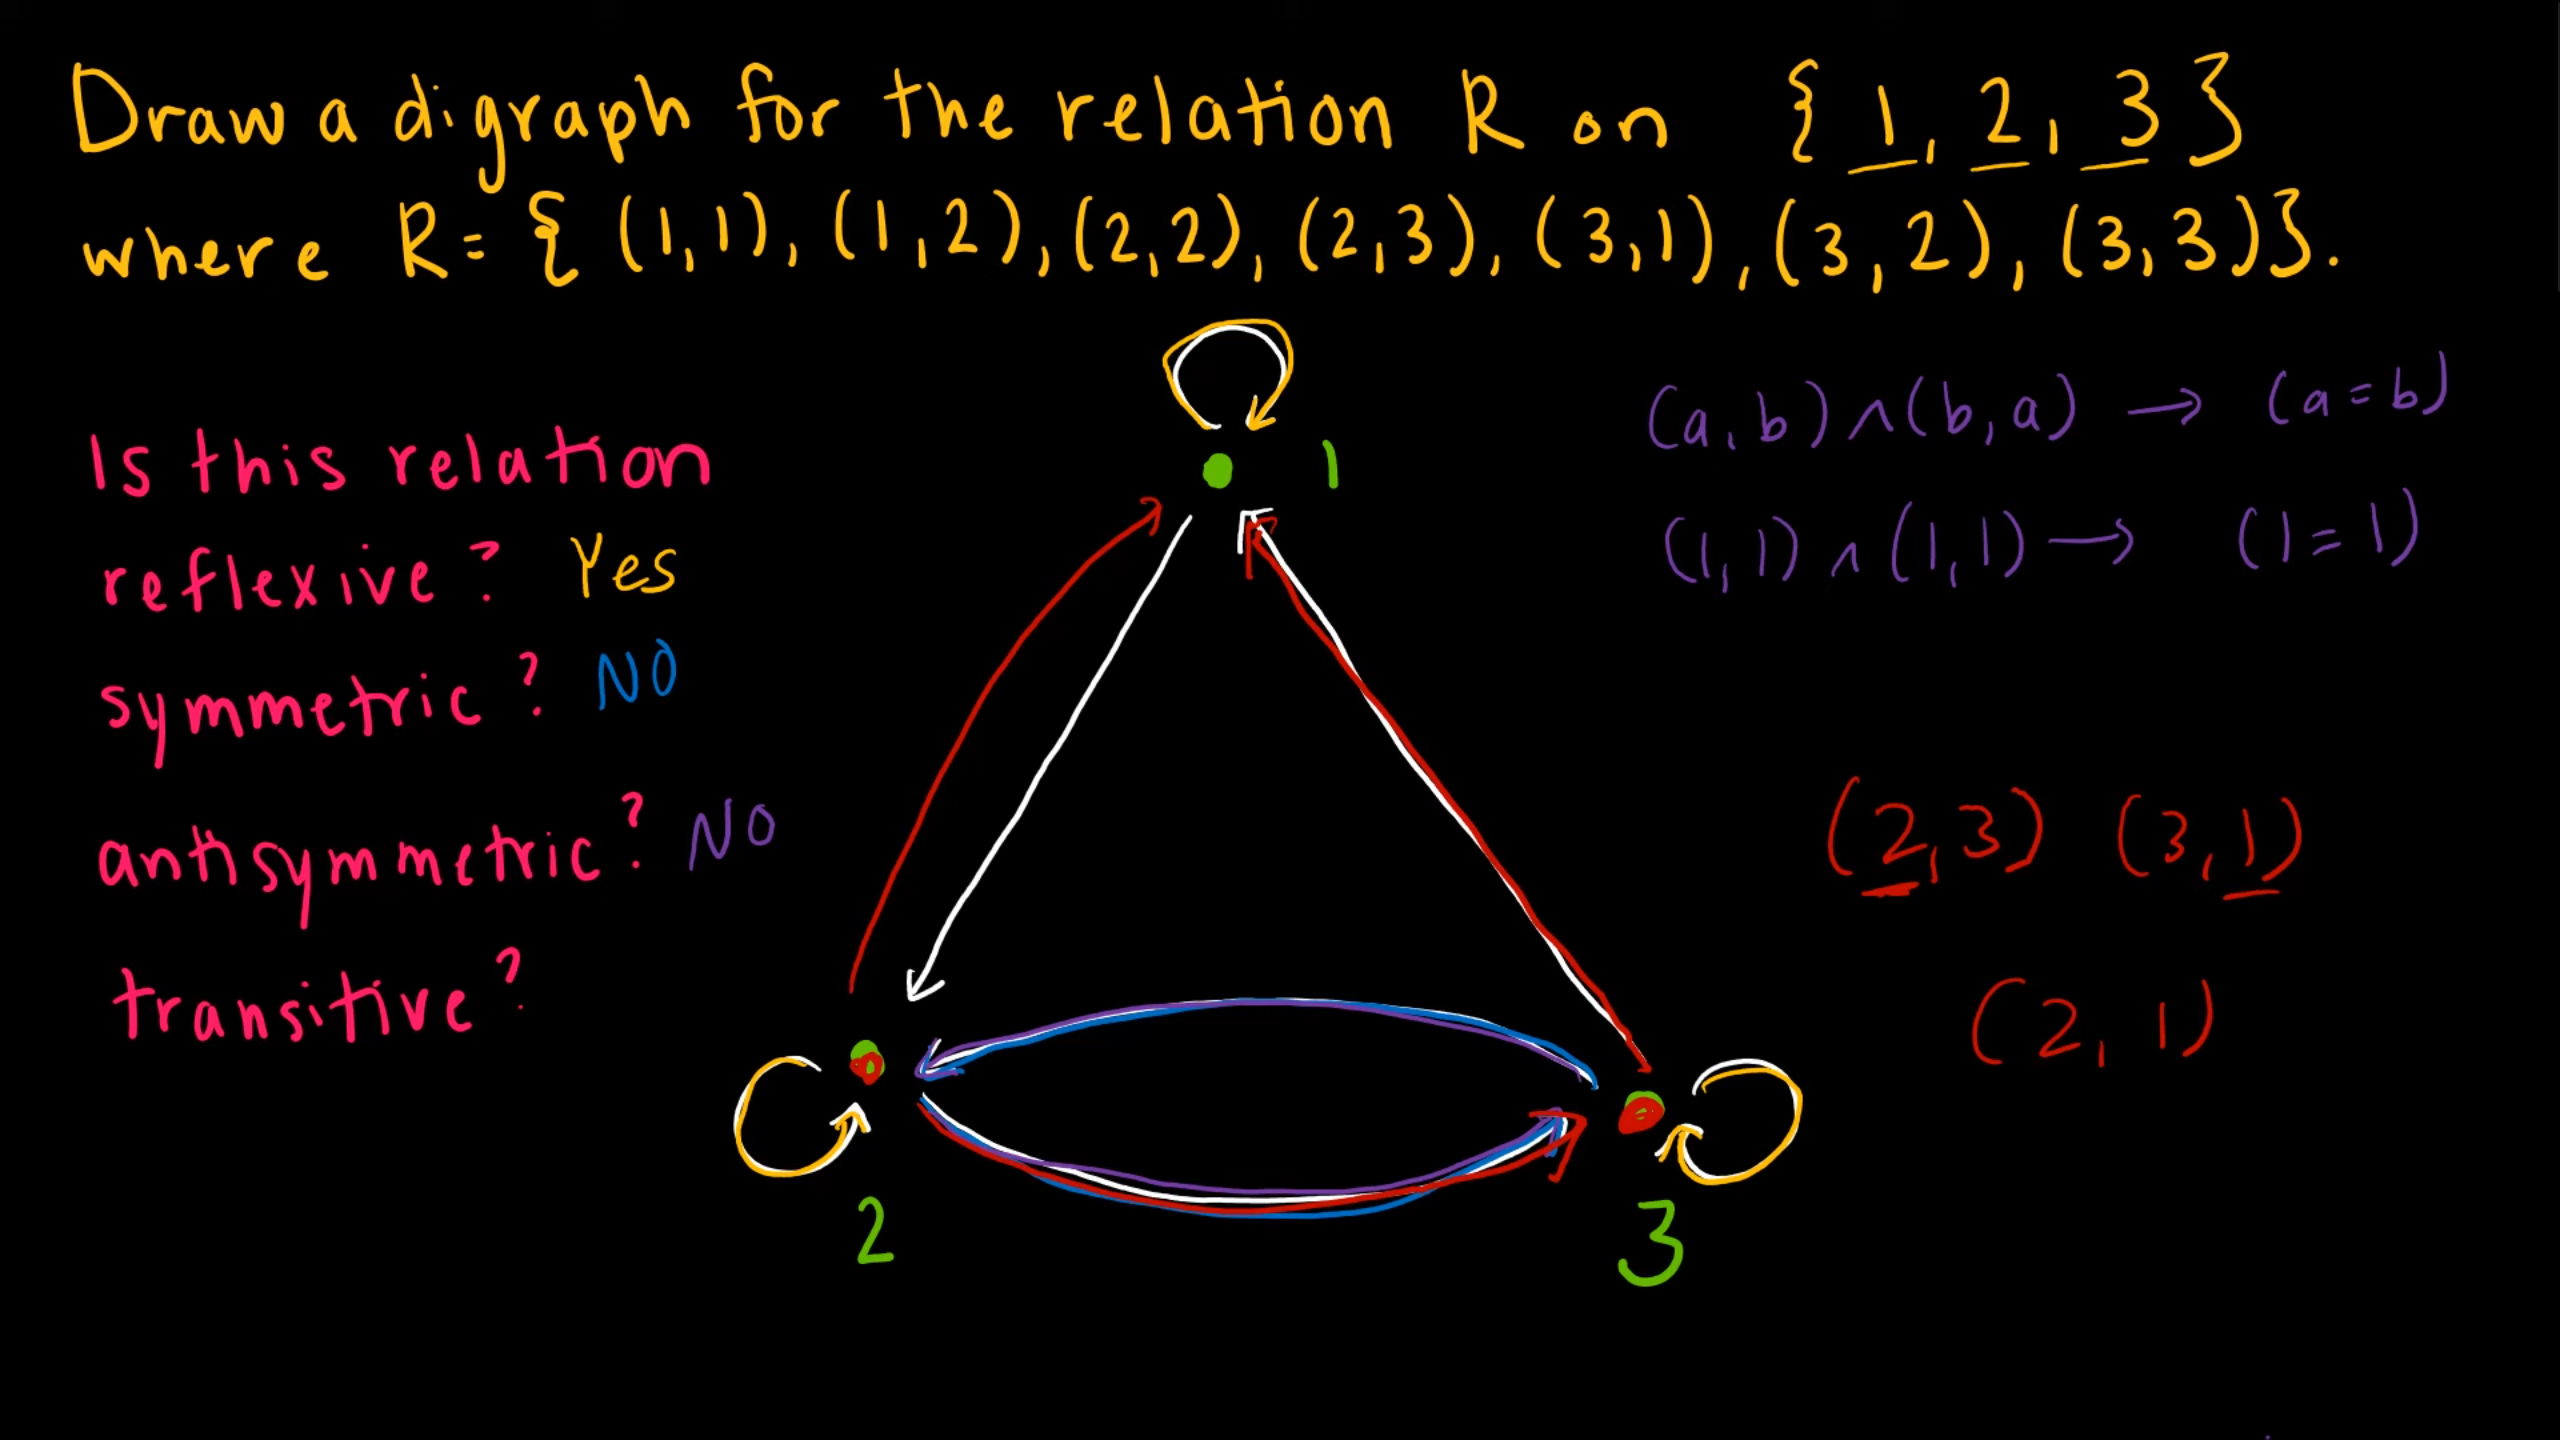 Draw a digraph for the relation R on { 1, 2, 3 }
where R = { (1,1), (1,2), (2,2), (2,3), (3,1), (3,2), (3,3)}.
Is this relation
reflexive? Yes
symmetric? NO
antisymmetric? NO
transitive?
1
2
3
(a,b) ∧ (b,a) → (a=b)
(1,1) ∧ (1,1) → (1=1)
(2,3) (3,1)
(2,1)